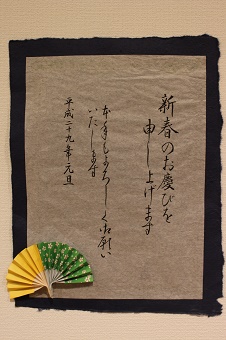 新春のお慶びを
申し上げます
本年もよろしくお願い
いたします
平成二十九年元旦